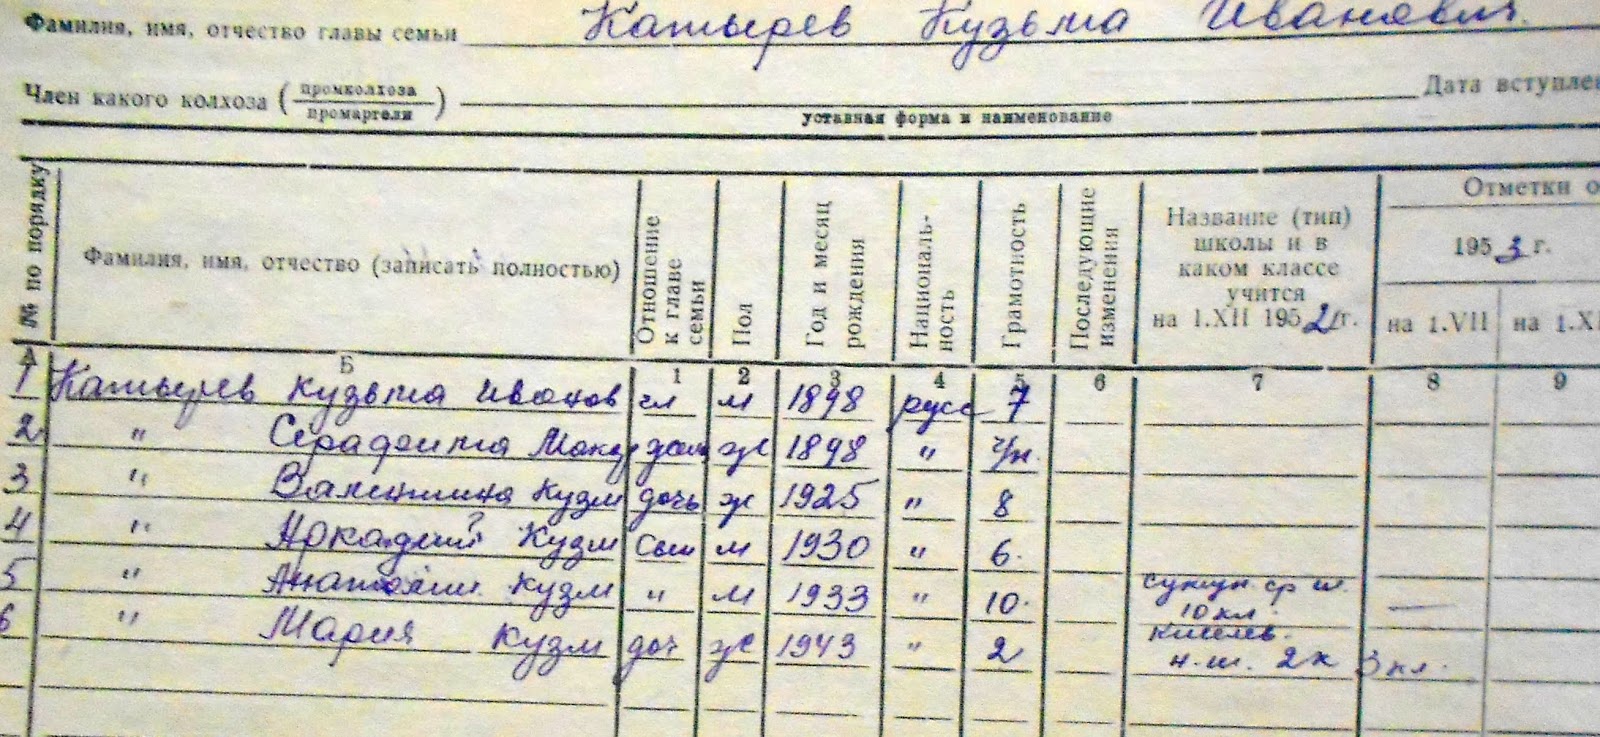 Фамилия, имя, отчество главы семьи Катырев Кузьма Иванович.
Член какого колхоза (промколхоза / промартели) Дата вступлен
уставная форма и наименование
№ по порядку Фамилия, имя, отчество (записать полностью) Отношение к главе семьи Пол Год и месяц рождения Националь-ность Грамотность Последующие изменения Название (тип) школы и в каком классе учится на 1.XII 1952 г. Отметки о
1953 г.
на 1.VII на 1.XI
А Б 1 2 3 4 5 6 7 8 9
1 Катырев Кузьма Иванов гл м 1898 русс 7
2 " Серафима Макар жен ж 1898 "
3 " Валентина Кузм дочь ж 1925 " 8
4 " Аркадий Кузм Сын м 1930 " 6.
5 " Анатолий. Кузм " м 1933 " 10. ср ш. 10 кл. —
6 " Мария Кузм доч ж 1943 " 2 н.ш. 2 к 3 кл.